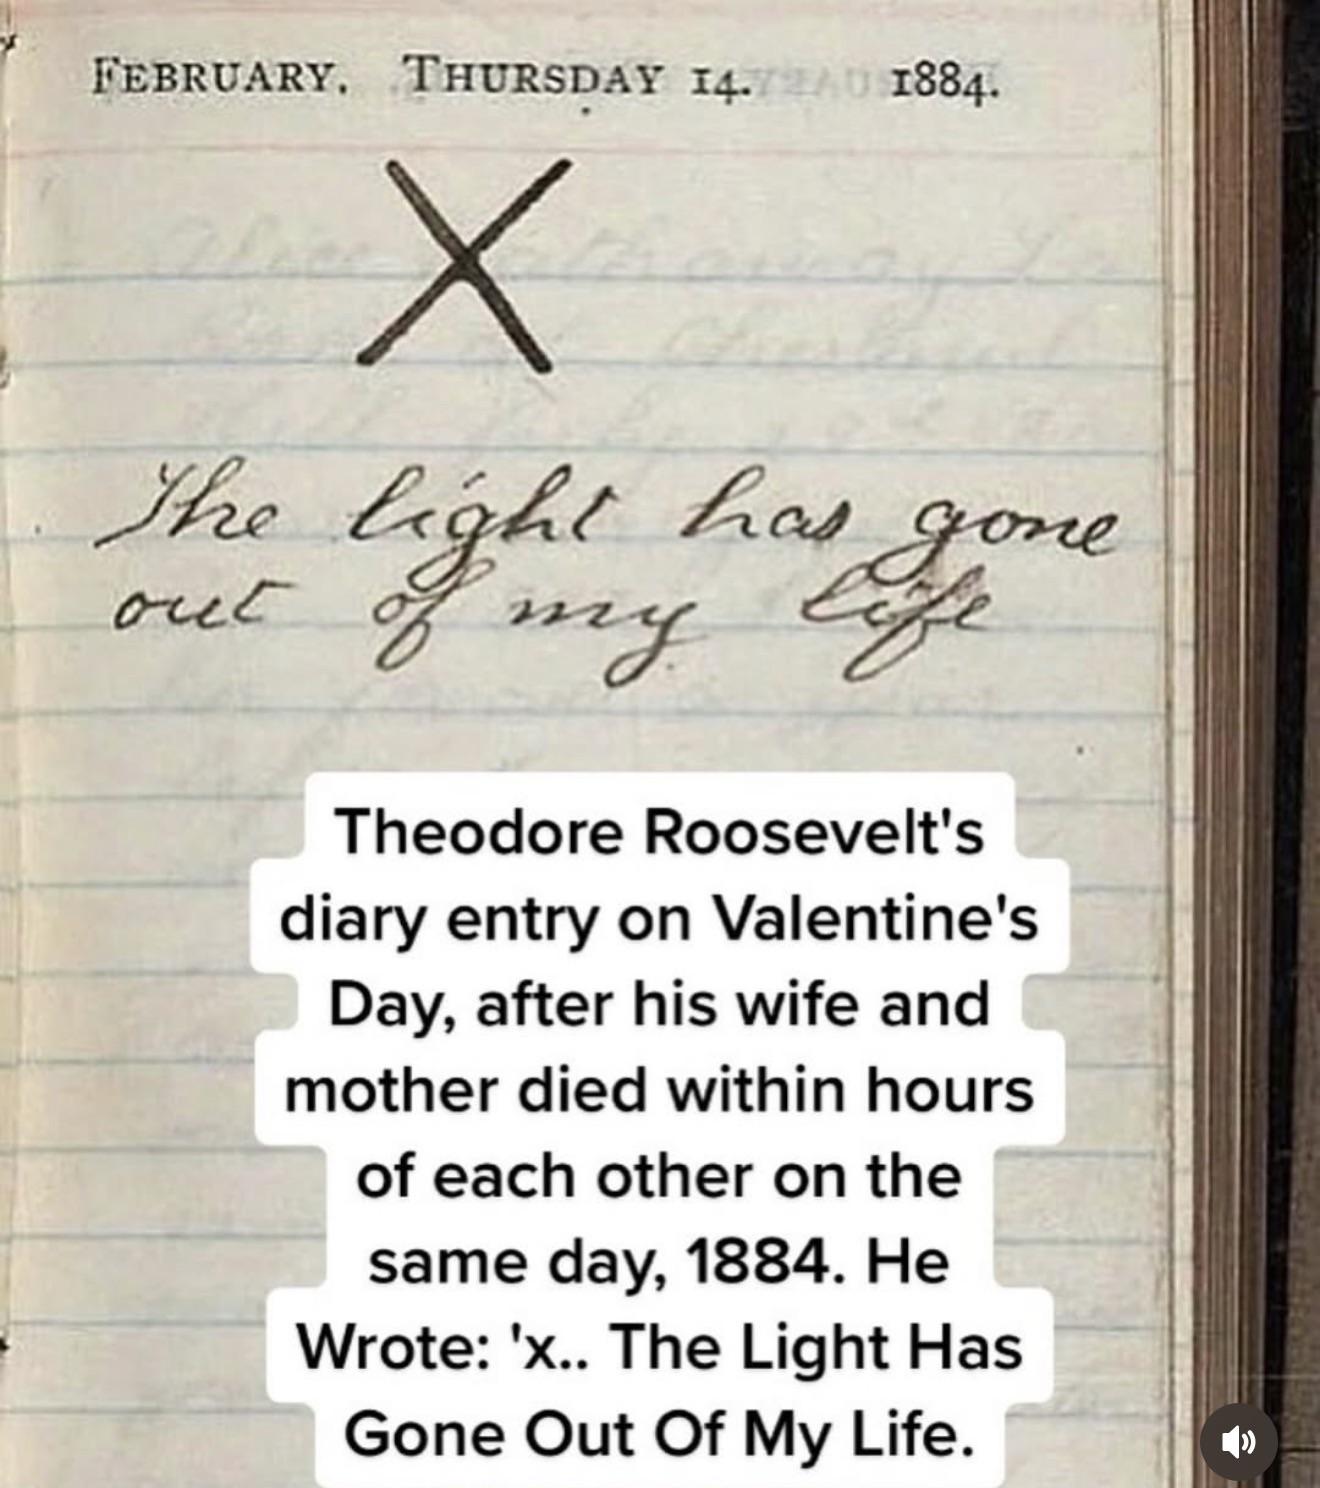 FEBRUARY. THURSDAY 14. 1884.
X
The light has gone
out of my life
Theodore Roosevelt's
diary entry on Valentine's
Day, after his wife and
mother died within hours
of each other on the
same day, 1884. He
Wrote: 'x.. The Light Has
Gone Out Of My Life.